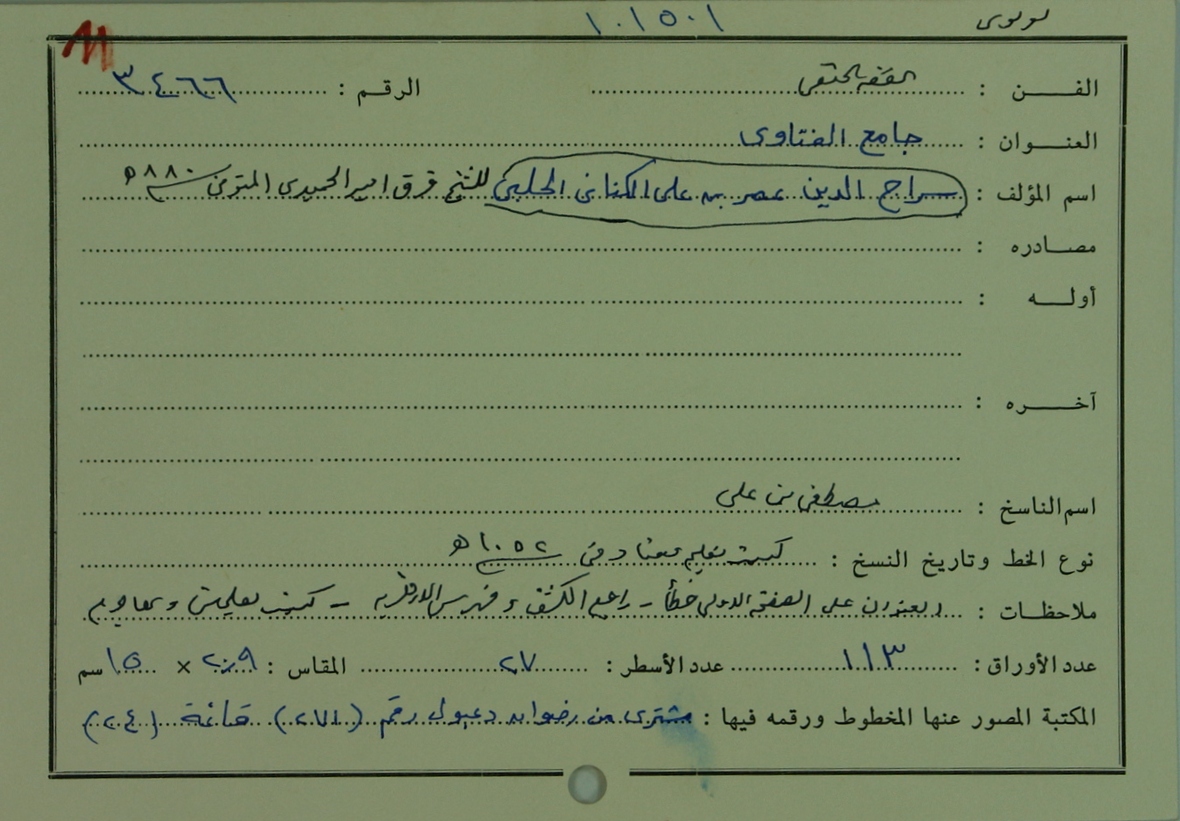 ١٠١٥٠١
١١
الفن : الفقه الحنفي الرقم : ٣٤٦٦
العنوان : جامع الفتاوى
اسم المؤلف : سراج الدين عمر بن علي الكناني الحلبي للشيخ قرق امير الحميدي المتوفى ٨٨٠ ھ
مصادره :
أوله :
آخره :
اسم الناسخ : مصطفى بن علي
نوع الخط وتاريخ النسخ : كتبت بقلم معتاد في ١٠٥٢ ھ
ملاحظات : العنوان على الصفحة الاولى خطأ - راجع الكشف و فهرس الازهرية - كتبت بقلمين
عدد الأوراق : ١١٣ عدد الأسطر : ٢٧ المقاس : ٢٠٫٩ × ١٥ سم
المكتبة المصور عنها المخطوط ورقمه فيها : مشترى من رضوان دعبول رقم (٢٧١) قائمة (٢٤)